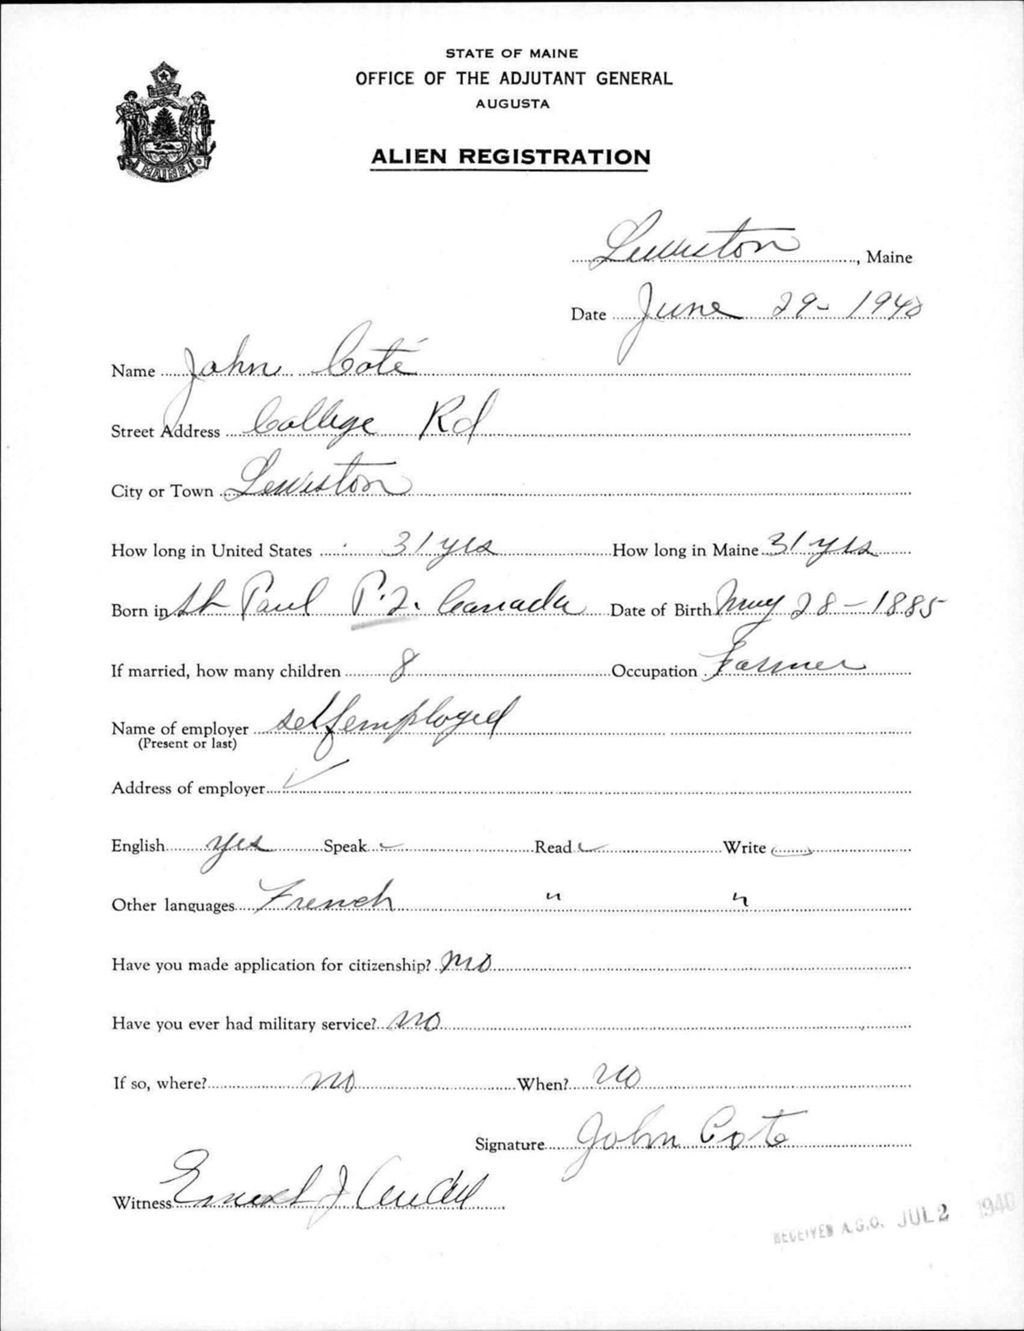 STATE OF MAINE
OFFICE OF THE ADJUTANT GENERAL
AUGUSTA
ALIEN REGISTRATION
MAINE
Lewiston, Maine
Date June 29 - 1940
Name John Coté
Street Address College Rd
City or Town Lewiston
How long in United States 31 yrs How long in Maine 31 yrs
Born in St Paul P.Q. Canada Date of Birth May 28 - 1885
If married, how many children 8 Occupation Farmer
Name of employer self employed
(Present or last)
Address of employer ✓
English yes Speak ✓ Read ✓ Write ✓
Other languages French " "
Have you made application for citizenship? no
Have you ever had military service? no
If so, where? no When? no
Signature John Cote
Witness Ernest J
RECEIVED A.G.O. JUL 2 1940